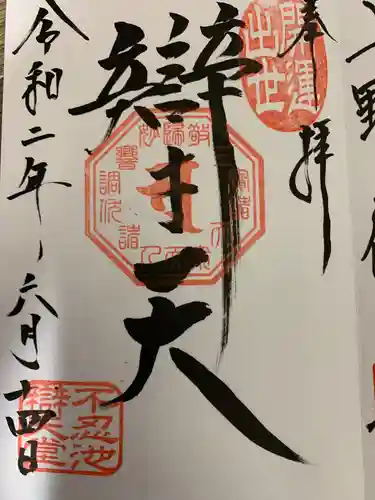 奉拝
開運
出世
辯才天
令和二年六月十四日
不忍池
辯天堂